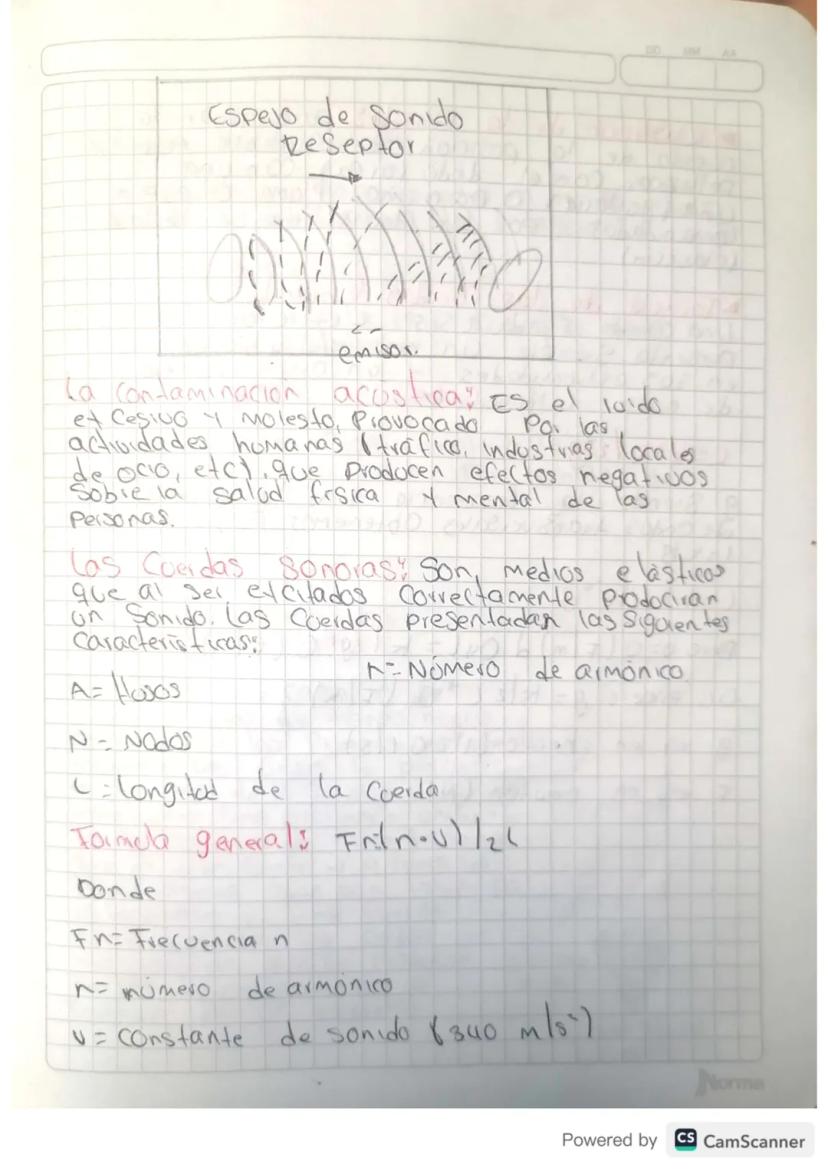 DD MM AA
Espejo de sonido
Reseptor
emisor.
La contaminacion acústica: Es el ruido
excesivo y molesto, provocado por las
actividades humanas (tráfico, industrias locales
de ocio, etc), que producen efectos negativos
sobre la salud física y mental de las
personas.
Las cuerdas sonoras: Son, medios elásticos
que al ser excitados correctamente produciran
un sonido. Las cuerdas presentadan las siguientes
características:
n = Número de armónico
A = Husos
N = Nodos
L = Longitud de la cuerda
Formula general: Fn=(n·v)/2L
Donde
Fn = Frecuencia n
n = número de armónico
v = constante de sonido (340 m/s²)
Norma
Powered by CS CamScanner